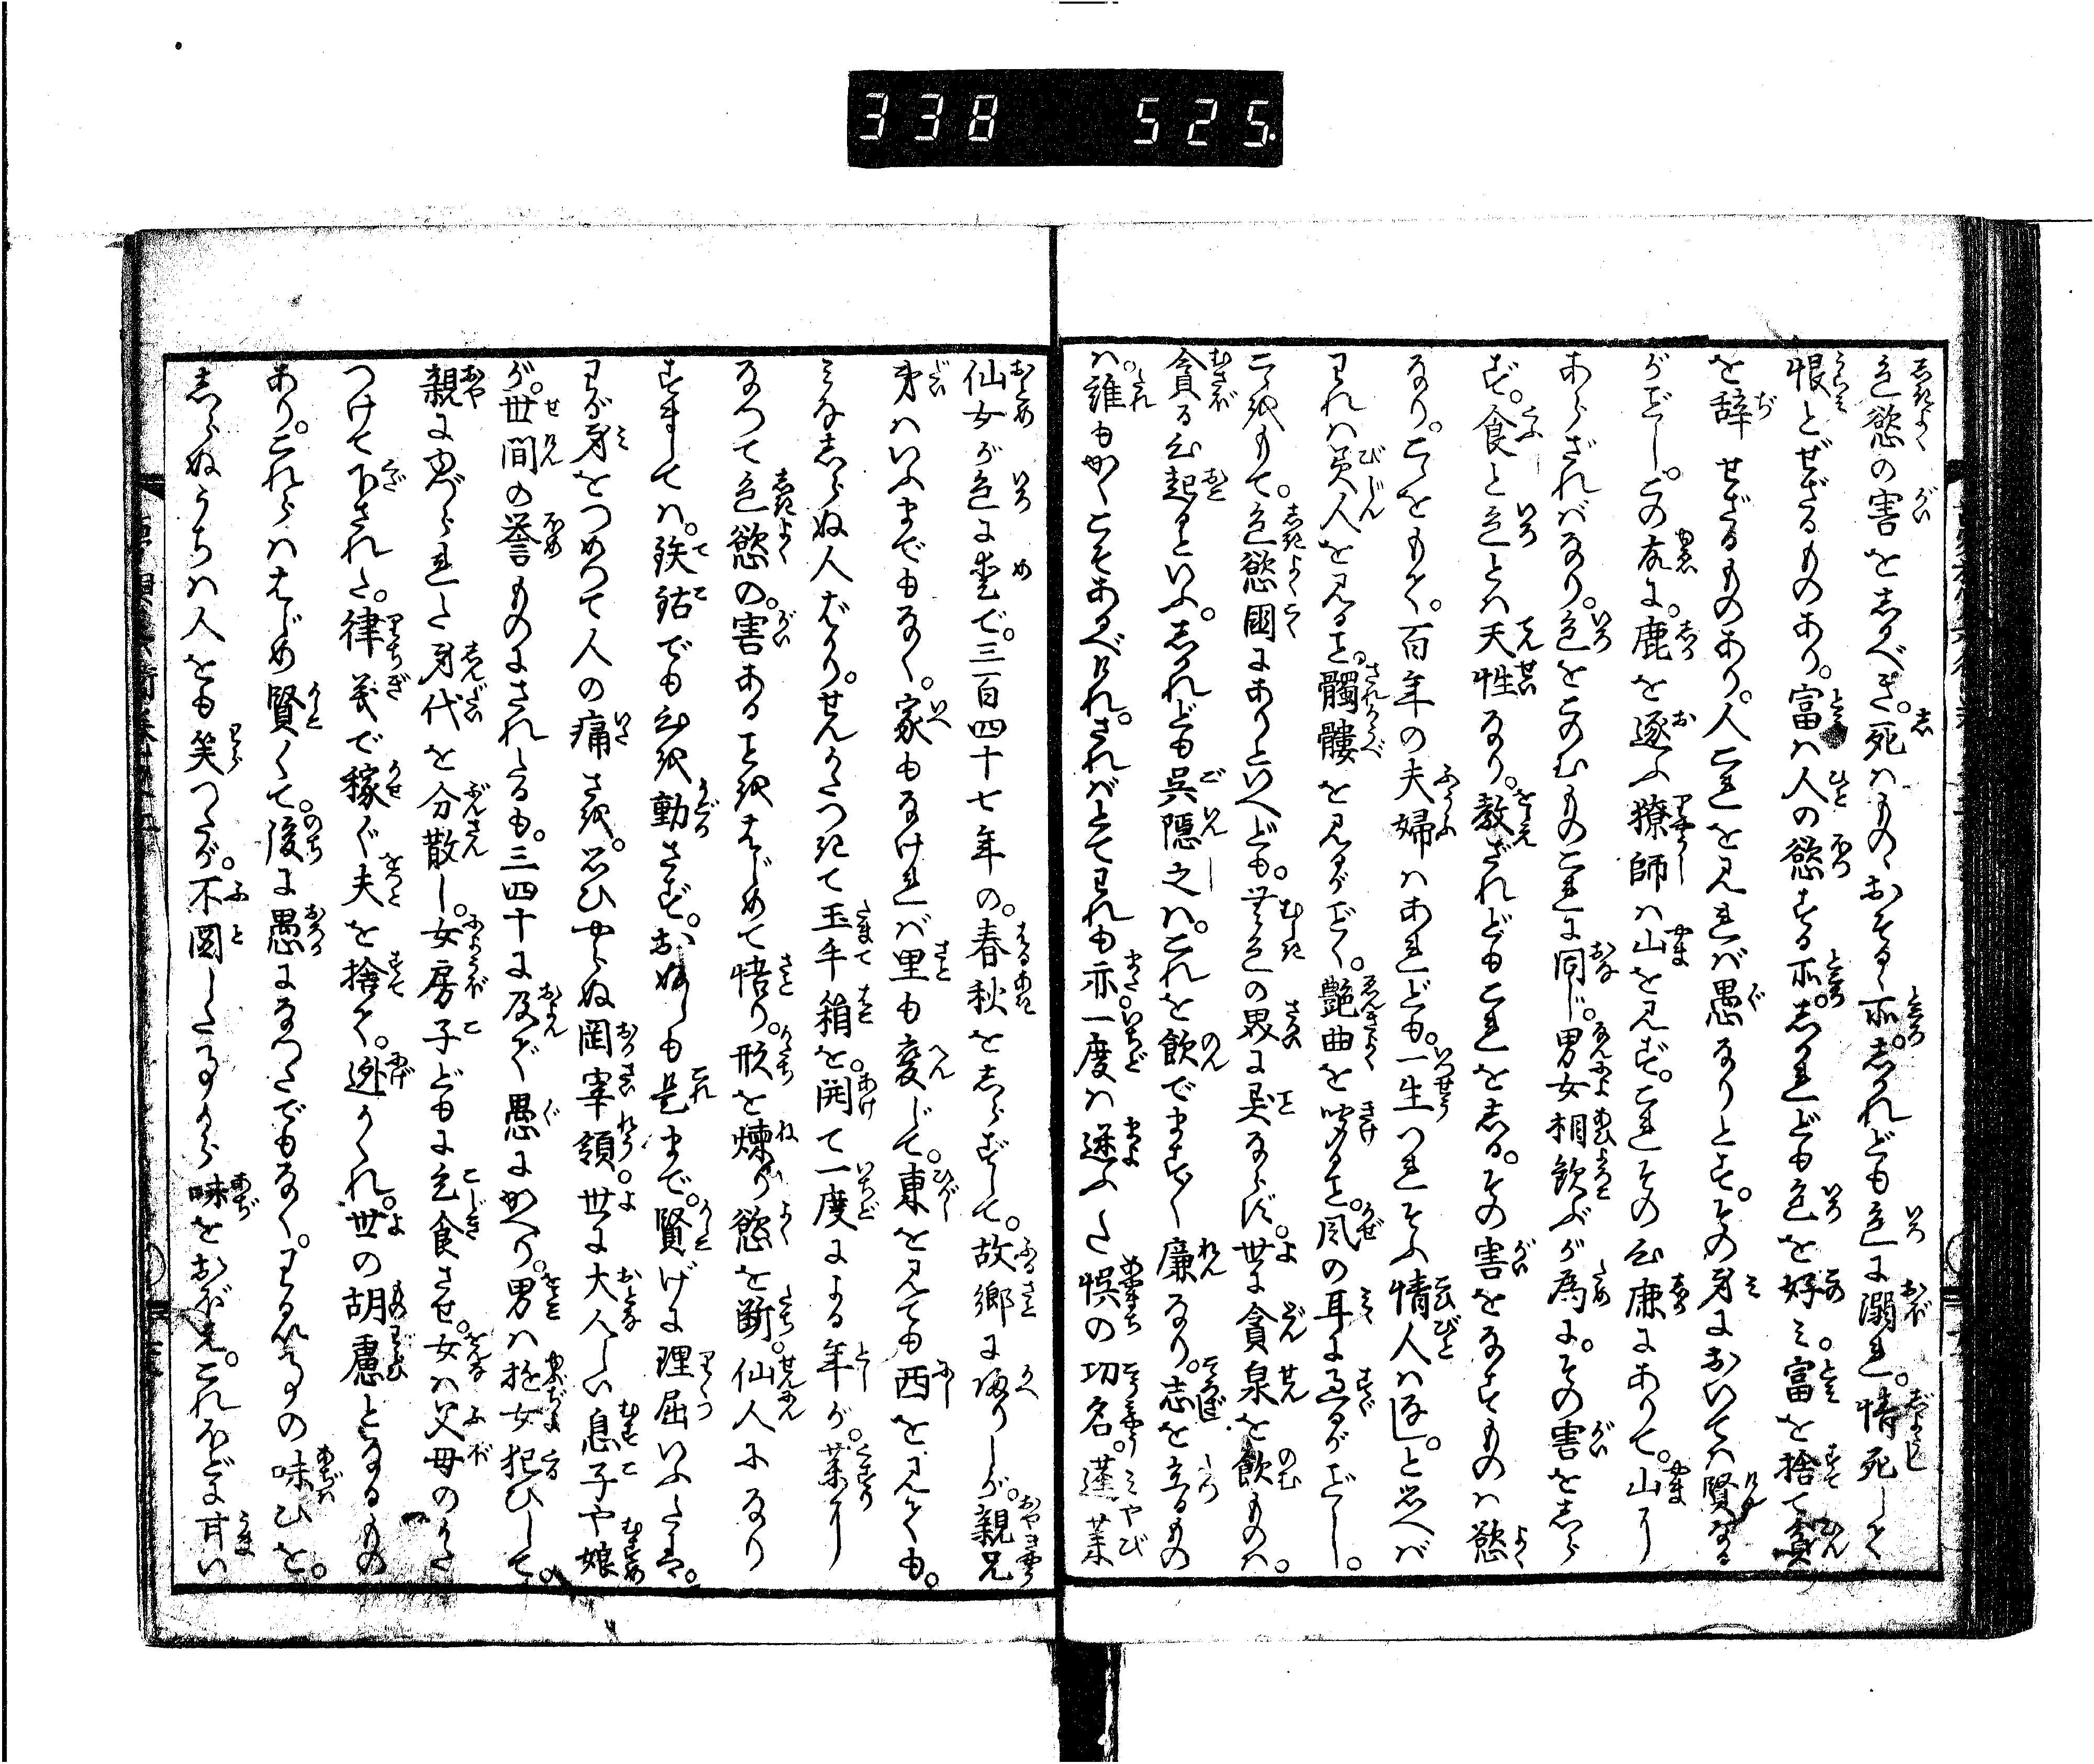 338 525
色慾の害をしるべき。死はものゝおそるゝ所。しかれども色に溺れ。情死して
恨とせざるものあり。富は人の慾する所。しかれども色を好み。富を捨て貧
を辞せざるものあり。人これを見れば愚なりとす。その身においては賢なる
がごとし。この故に。鹿を逐ふ獠師は山を見ず。これその心鹿にありて。山に
あらざればなり。色をこのむものこれに同じ。男女相歓ぶが為に。その害をしら
ず。食と色とは天性なり。教ざれどもこれをしる。その害をなすものは慾
なり。こゝをもて。百年の夫婦はあれども。一生つれそふ情人はなし。と思へば
われは美人を見ること。髑髏を見るがごとく。艶曲を聞こと。風の耳に過るがごとし。
こゝをもて。色慾国にありといへども。無色の界に異ならず。世に貪泉を飲ものは。
貪る心起るといふ。しかれども呉隠之は。これを飲でます〳〵廉なり。志を立るもの
は。誰もかくこそあるべけれ。さればとてわれも亦。一度は迷ふた悞の功名。蓬莱
仙女が色に愛で。三百四十七年の。春秋をしらずして。故郷に帰りしが。親兄
弟はいふまでもなく。家もなければ里も変じて。東を見ても西を見ても。
みなしらぬ人ばかり。せんかたつきて玉手箱を。開て一度による年が。薬に
なつて色慾の。害あることをはじめて悟り。形を煉り慾を断。仙人になり
すましては。鉄鈷でも心を動さず。おぬしも是まで。賢げに理屈いふたは。
わが身をつめつて人の痛さを。思ひやらぬ岡宰領。世に大人しい息子や娘
が。世間の誉ものにされたるも。三四十に及で愚にかへり。男は遊女狂ひして。
親にゆづられた身代を分散し。女房子どもに乞食させ。女は父母のかた
つけて下された。律義で稼ぐ夫を捨て。逊かくれ。世の胡慮となるもの
あり。これらははじめ賢くて。後に愚になつたでもなく。わるい事の味ひを。
しらぬうちは人をも笑つたが。不図した事から味をおぼえ。これほどに甘い